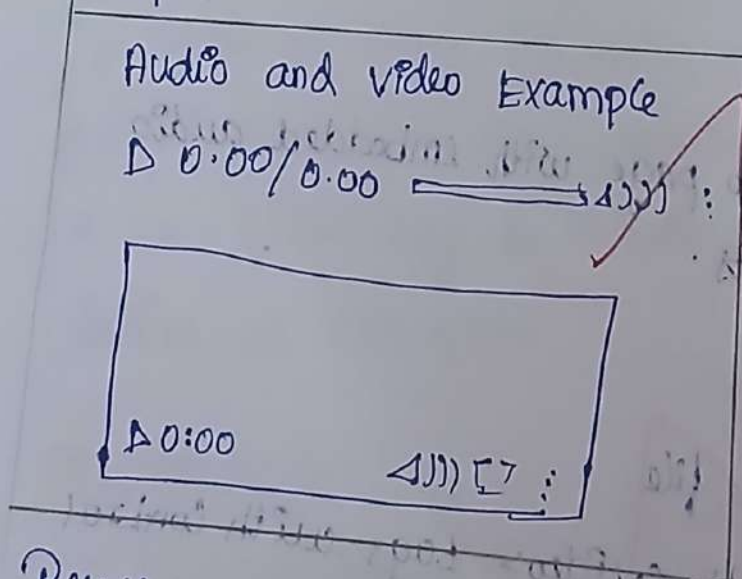 Audio and video Example
0.00/0.00 :
0:00 [] :